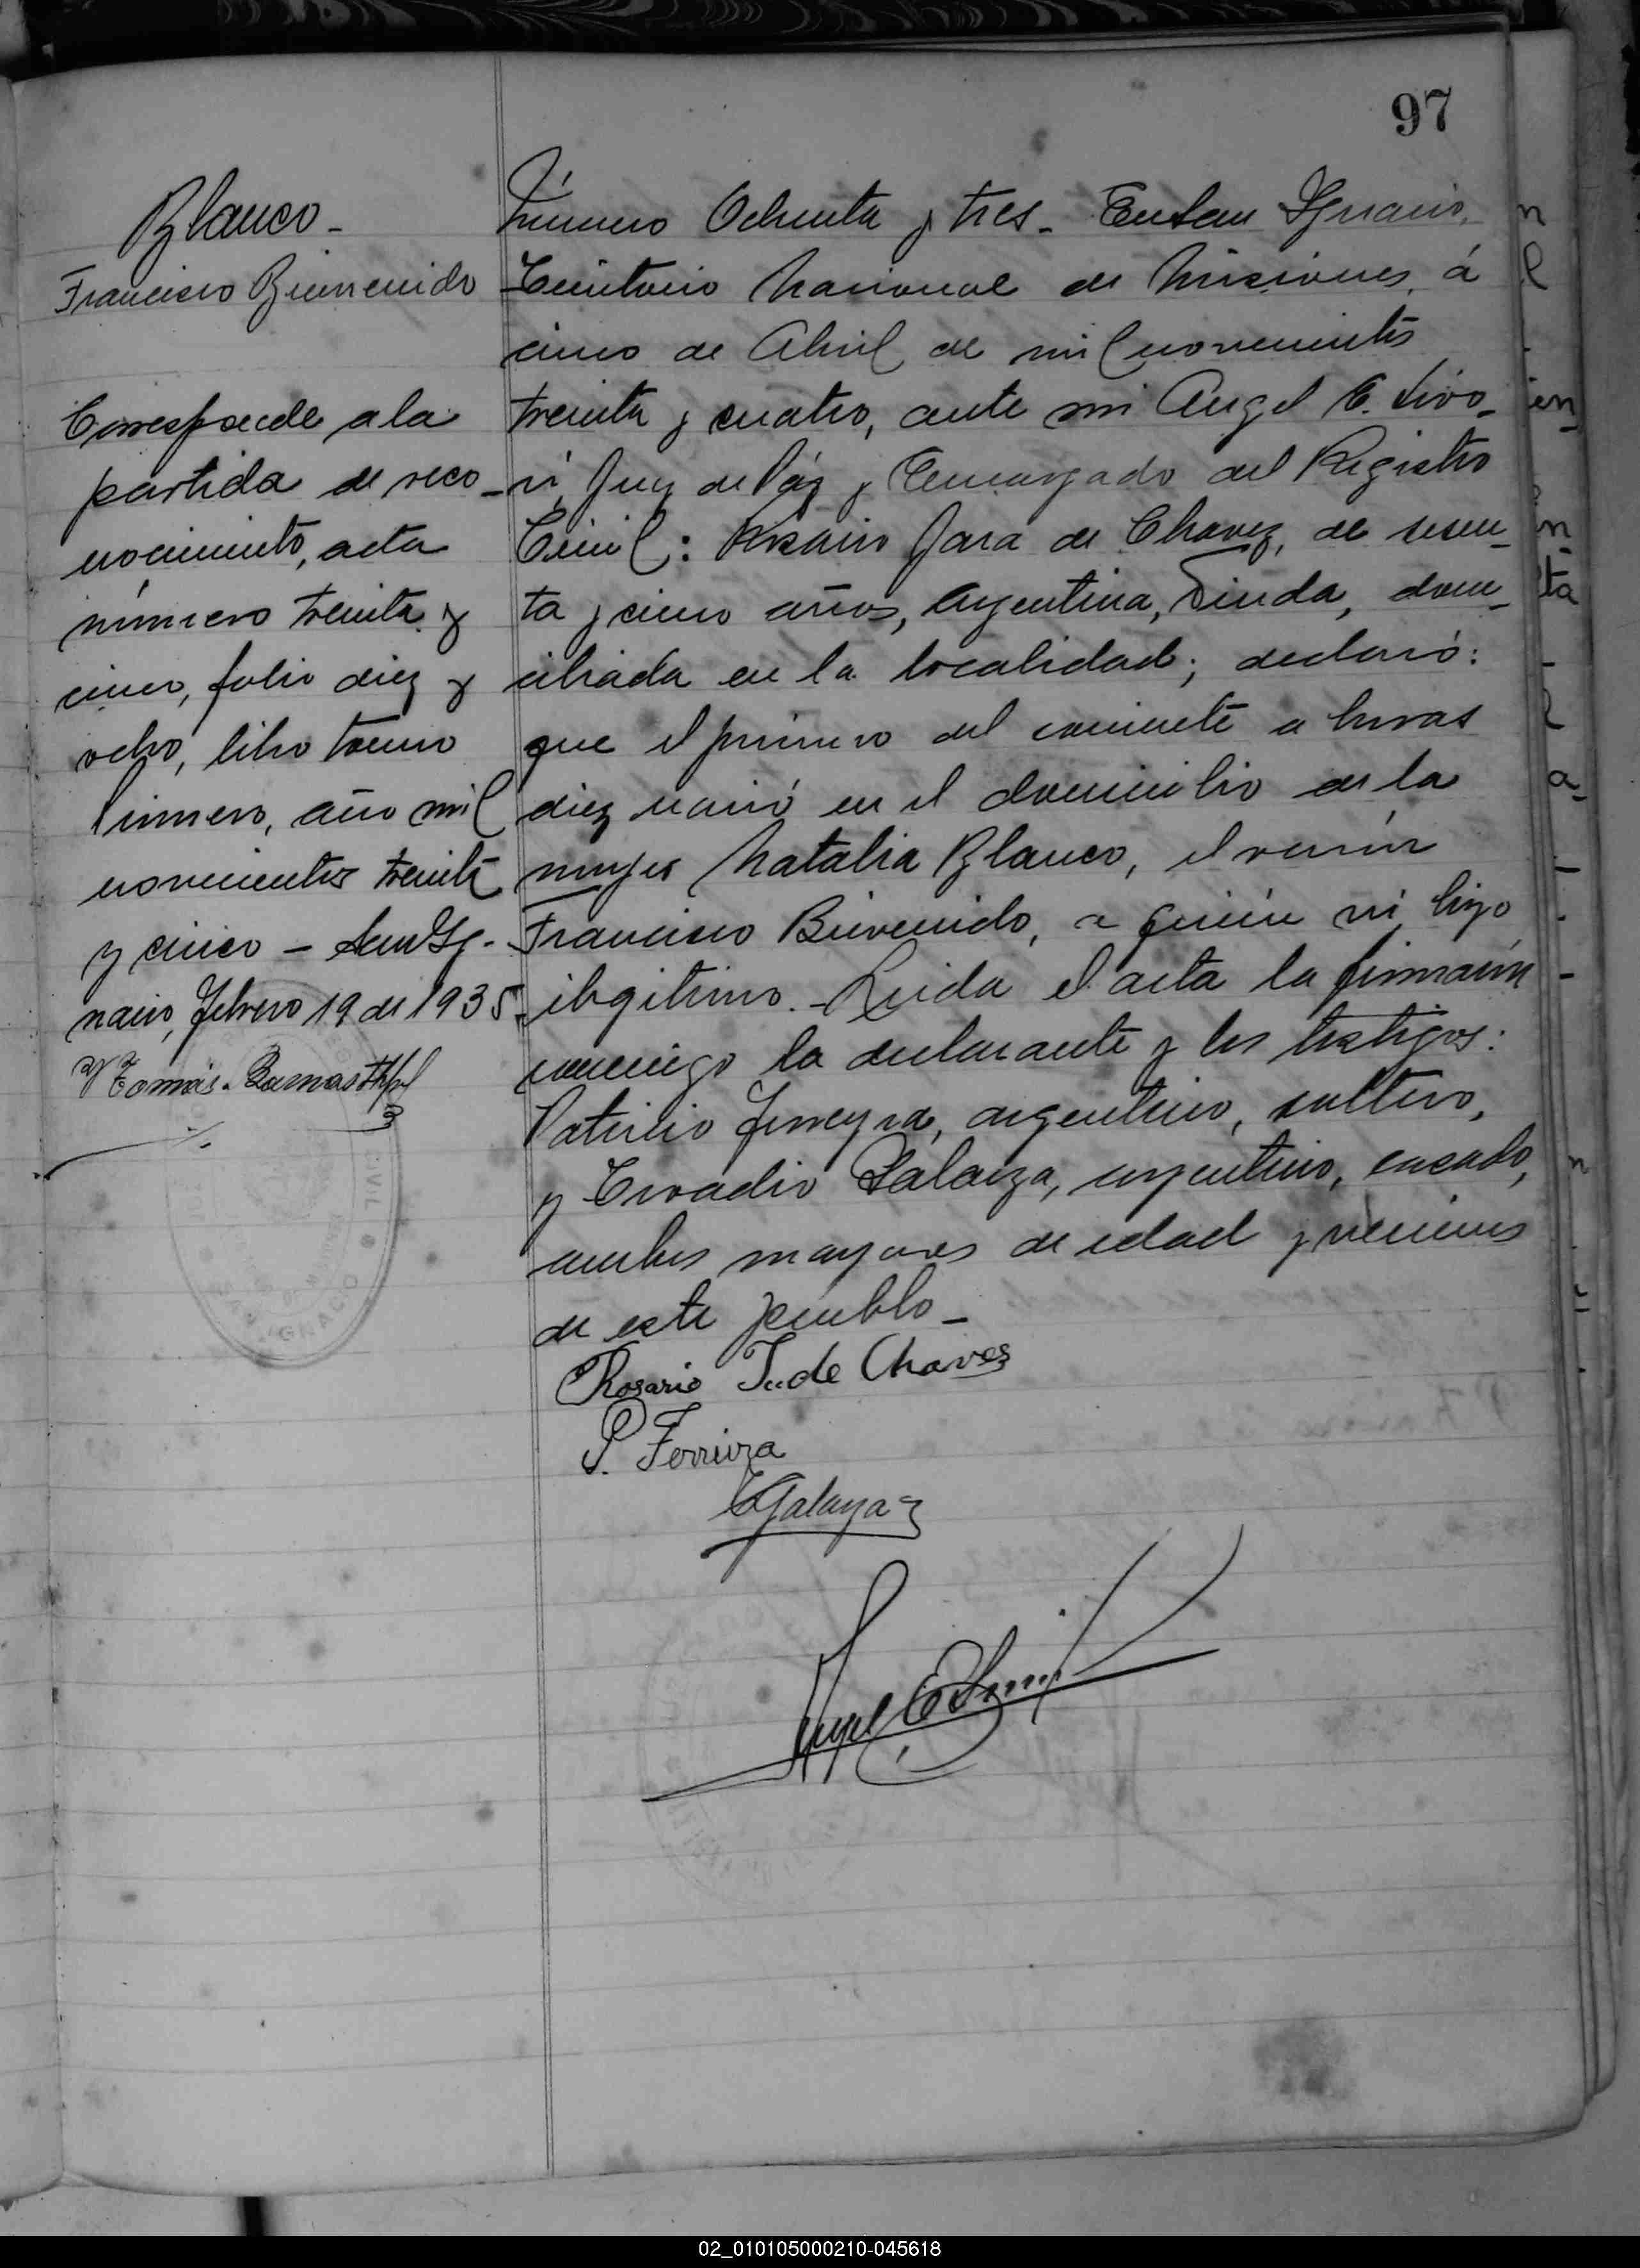 97
Blanco -
Francisco Bienvenido
Corresponde a la
partida de reco-
nocimiento, acta
número treinta y
cinco, folio diez y
ocho, libro tomo
primero, año mil
novecientos treinta
y cinco - San Ig-
nacio, febrero 19 de 1935
Tomás
Número Ochenta y tres - En San Ignacio,
Territorio Nacional de Misiones, á
cinco de Abril de mil novecientos
treinta y cuatro, ante mi Angel E.
Juez de Páz y Encargado del Registro
Civil: Rosario Jara de Chavez, de sesen-
ta y cinco años, argentina, viuda, domi-
ciliada en la localidad; declaró:
que el primero del corriente a horas
diez nació en el domicilio de la
mujer Natalia Blanco, el varón
Francisco Bienvenido, a quién vi, hijo
ilegitimo. - Leida el acta la firmaron
conmigo la declarante y los testigos:
Patricio Ferreyra, argentino, soltero,
y Galarza, argentino, casado,
ambos mayores de edad y vecinos
de este pueblo -
Rosario J. de Chaves
P. Ferreira
SAN IGNACIO
CIVIL
02_010105000210-045618